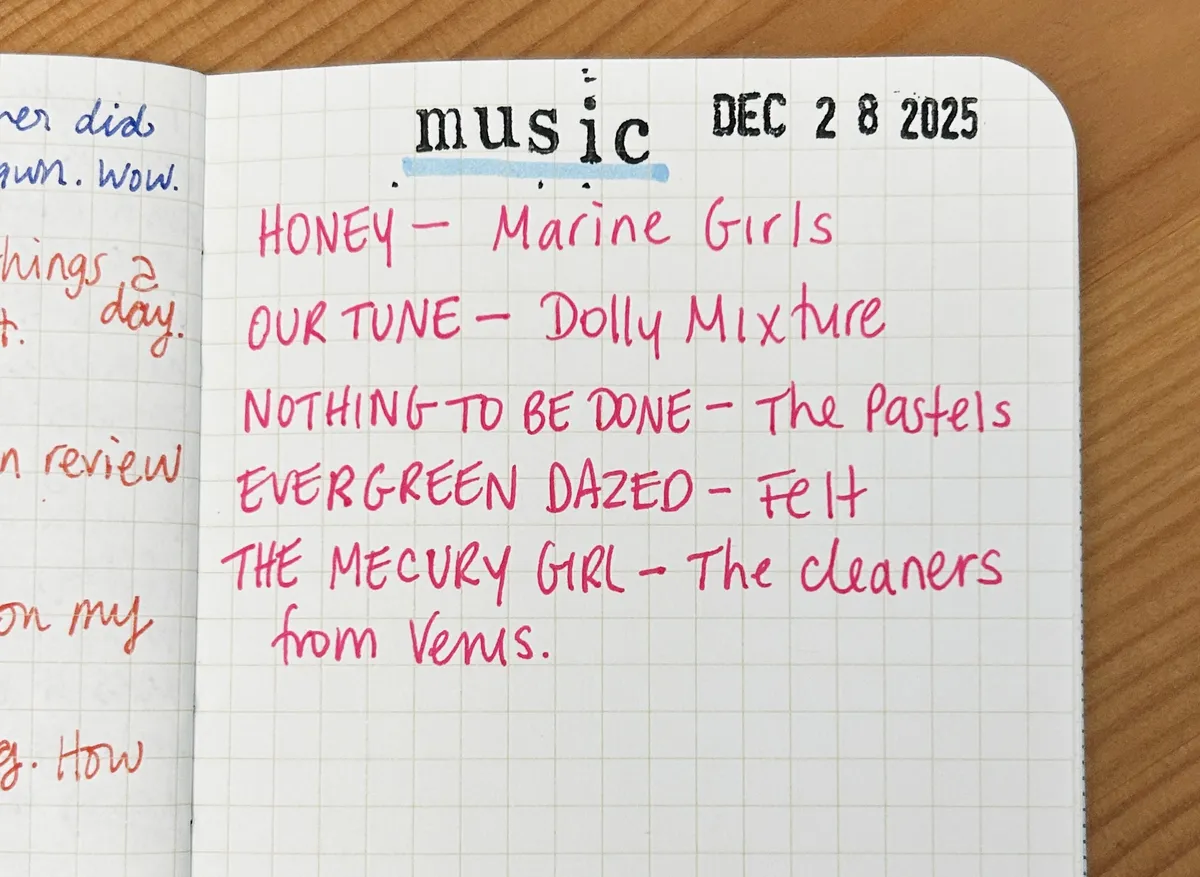 did
Wow.
a
day.
review
on my
How
music DEC 28 2025
HONEY — Marine Girls
OUR TUNE — Dolly Mixture
NOTHING TO BE DONE — The Pastels
EVERGREEN DAZED — Felt
THE MECURY GIRL — The cleaners
from Venus.